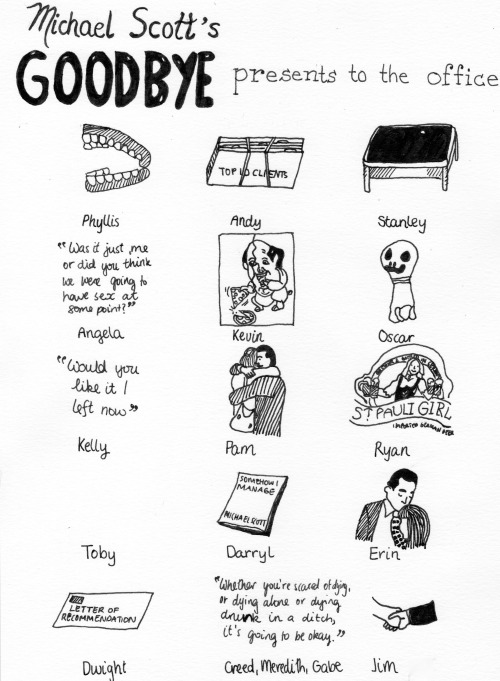 Michael Scott's
GOODBYE presents to the office
TOP 10 CLIENTS
Phyllis
Andy
Stanley
"Was it just me
or did you think
we were going to
have sex at
some point?"
Angela
Kevin
Oscar
"Would you
like it I
left now"
ST PAULI GIRL
IMPORTED GERMAN BEER
Kelly
Pam
Ryan
SOMEHOW I
MANAGE
MICHAEL SCOTT
Toby
Darryl
Erin
LETTER OF
RECOMMENDATION
"Whether you're scared of dying,
or dying alone or dying
drunk in a ditch,
it's going to be okay."
Dwight
Creed, Meredith, Gabe
Jim